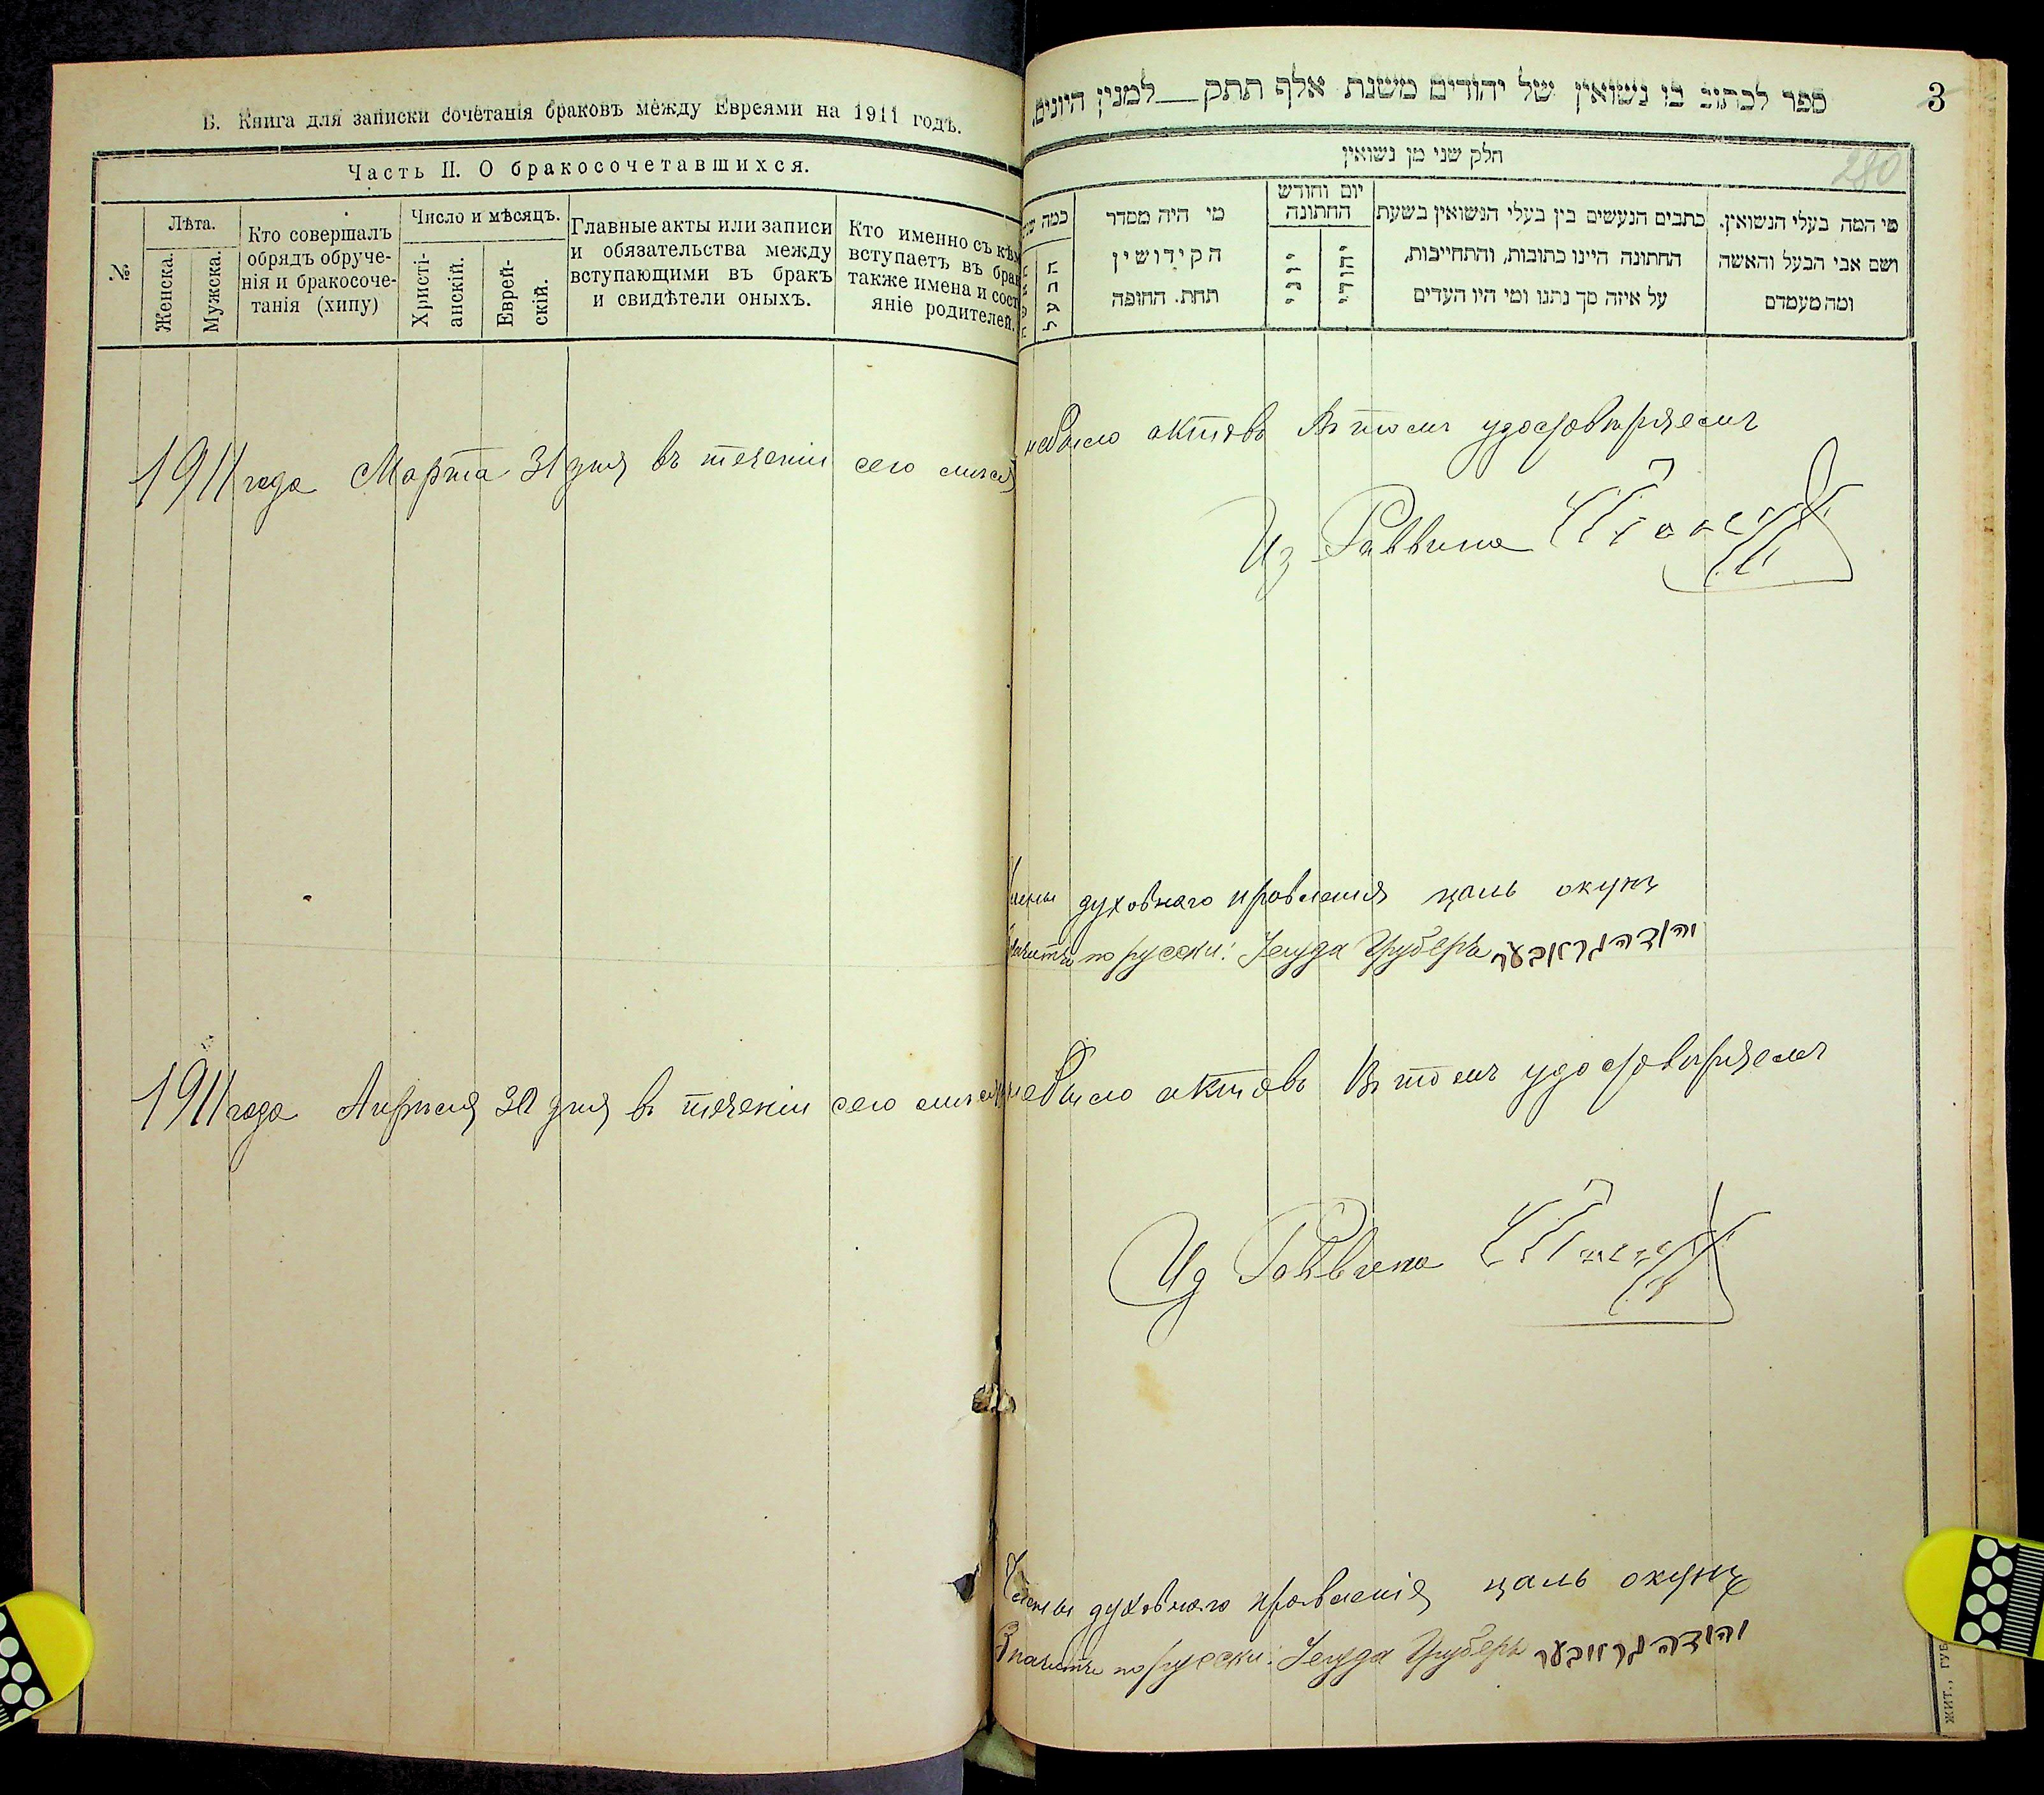 Б. Книга для записки сочетанія браковъ между Евреями на 1911 годъ.
Часть II. О бракосочетавшихся.
№
Лѣта.
Женска.
Мужска.
Кто совершалъ
обрядъ обруче-
нія и бракосоче-
танія (хипу)
Число и мѣсяцъ.
Христі-
анскій.
Еврей-
скій.
Главные акты или записи
и обязательства между
вступающими въ бракъ
и свидѣтели оныхъ.
Кто именно съ кѣм
вступаетъ въ брак
также имена и сост
яніе родителей.
1911 года Марта 31 дня въ теченіи сего мѣся
1911 года Апрѣля 30 дня в теченіи сего мѣся
ספר לכתוב בו נשואין של יהודים משנת אלף תתק__למנין היונים.
3
280
חלק שני מן נשואין
מי המה בעלי הנשואין.
ושם אבי הבעל והאשה
ומה מעמדם
כתבים הנעשים בין בעלי הנשואין בשעת
החתונה היינו כתובות, והתחייבות,
על איזה סך נתנו ומי היו העדים
יום וחודש
החתונה
יהודי
יוני
מי היה מסדר
הקידושין
תחת. החופה
כמה
הבעל
небыло актовъ Въ томъ удостовѣряемъ
Из Раввина
члены духовнаго правленія цаль окунь
Значитъ по русски: Іегуда Груберъ יהודה גרובער
небыло актовъ Въ томъ удостовѣряемъ
Ид Раввина
Члены духовнаго правленія цаль окунь
Значитъ по русски: Іегуда Груберъ יהודה גרובער
жит., губ